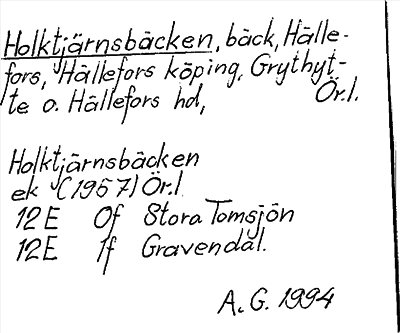 Holktjärnsbäcken, bäck, Hälle-
fors, Hällefors köping, Grythyt-
te o. Hällefors hd, Ör.l.
Holktjärnsbäcken
ek (1957) Ör.l.
12E 0f Stora Tomsjön
12E 1f Gravendal.
A.G. 1994